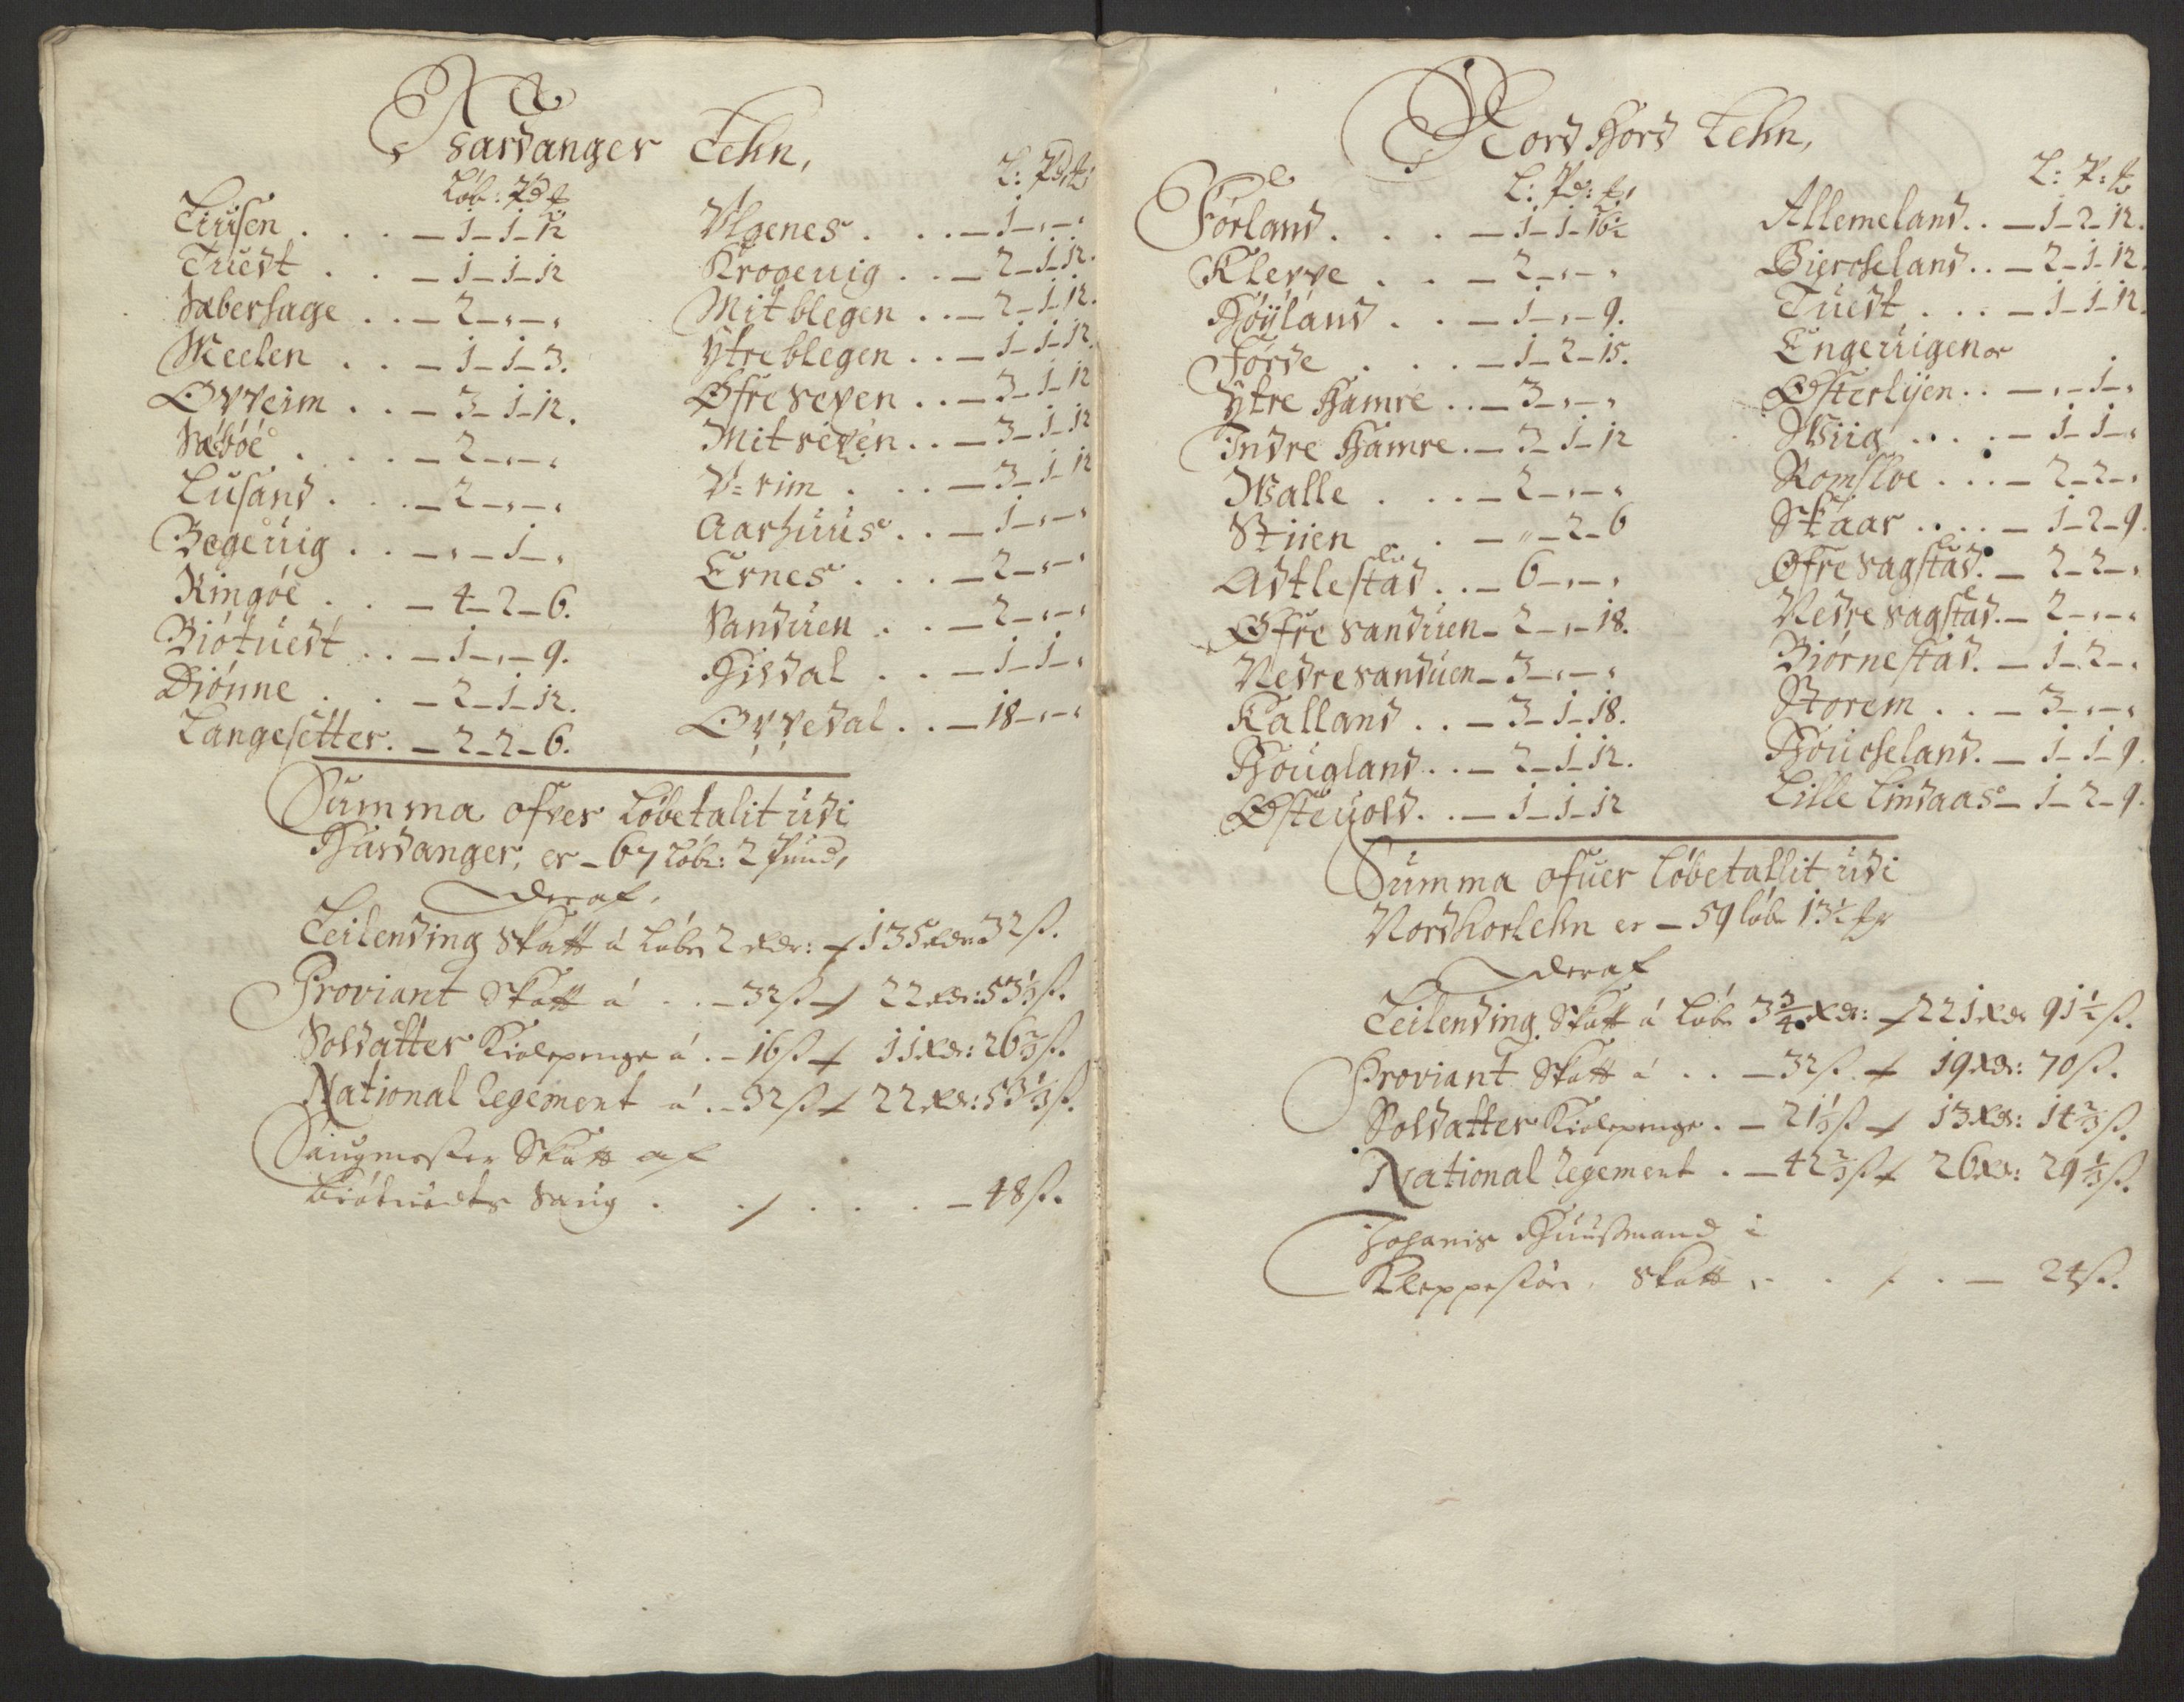 Hardanger Lehn,
Løb: Pd ℔
Liusen . . . – 1 – 1 – 12
Tuedt . . – 1 – 1 – 12
Sæberhage . . – 2 – „ – „
Meelen . . – 1 – 1 – 3.
Opheim . . – 3 – 1 – 12.
Sæbøe . . . – 2 – „ – „
Lusand . . . – 2 – „ – „
Begeuig . . – „ – 1 – „
Ringøe . . – 4 – 2 – 6.
Biotuedt . . – 1 – „ – 9.
Diønne . . – 2 – 1 – 12.
Langesetter. – 2 – 2 – 6.
L: Pd: ℔
Algenes . . . – 1 – „ – „
Krogeuig . . – 2 – 1 – 12.
Mitblegen . . – 2 – 1 – 12.
Ytreblegen . . – 1 – 1 – 12.
Øfre Sexen . . – 3 – 1 – 12
Mitsexen . . – 3 – 1 – 12
V= rim . . . – 3 – 1 – 12
Aarhuus . . – 1 – „ – „
Ernes . . . – 2 – „ – „
Sanduen . . – 2 – „ – „
Hisdal . . – 1 – 1 – „
Oppedal . . – 18 – „ – „
Summa ofver Løbetalit udi
Hardanger, er – 67 Løbe: 2 Pund,
Deraf,
Leilending Skatt á Løben 2 Rdr: ⁄ 135 Rdr 32 ß.
Proviant Skatt á . . – 32 ß ⁄ 22 Rdr: 53⅓ ß.
Soldatter Kiolepenge á . – 16 ß ⁄ 11 Rdr: 26⅔ ß.
National Regement á . – 32 ß ⁄ 22 Rdr: 53⅓ ß.
Saugmester Skatt af
Biøtuedts Saug . . ⁄ . . . – 48 ß.
Nord Hord Lehn,
L: Pd: ℔
Førland . . . – 1 – 1 – 16½
Kleppe . . – 2 – „ – „
Høyland . . – 1 – „ – 9.
Førde . . . – 1 – 2 – 15.
Ytre Hamre . . – 3 – „ – „
Indre Hamre . – 3 – 1 – 12
Walle . . . – 2 – „ – „
Stiien . . – „ – 2 – 6
Adtlestad . . – 6 – „ – „
Øfre Sanduen – 2 – „ – 18.
Nedre Sanduen – 3 – „ – „
Kalland . . – 3 – 1 – 18.
Hougland . . – 2 – 1 – 12.
Østeuold . . – 1 – 1 – 12
L: P: ℔
Allemeland . . – 1 – 2 – 12.
Biercheland . . – 2 – 1 – 12.
Tuedt . . . – 1 – 1 – 12.
Engeuigen oc
Østerlijen . . – „ – 1 – „
Wiig . . . . – 1 – 1 – „
Romsloe . . . – 2 – 2 – „
Skaar . . . . – 1 – 2 – 9.
Øfre Sagstad . – 2 – 2 – „
Nedre Sagstad. – 2 – „ – „
Biørnestad. – 1 – 2 – „
Storem . . – 3 – „ – „
Houcheland. – 1 – 1 – 9.
Lille Lindaas – 1 – 2 – 9.
Summa ofuer Løbetallit udi
Nordhorlehn er – 59 Løb 13½ ℔
Deraf
Leilending Skatt á Løb 3¾ Rdr: ⁄ 221 Rdr 91½ ß.
Proviant Skatt á . . – 32 ß ⁄ 19 Rdr: 70 ß.
Soldatter Kiolepenge . – 21⅓ ß ⁄ 13 Rdr: 14⅔ ß.
National Regement . – 42⅔ ß ⁄ 26 Rdr: 29⅓ ß.
Johanis Huusmand i
Kleppestøen, Skatt . . ⁄ . – 24 ß.